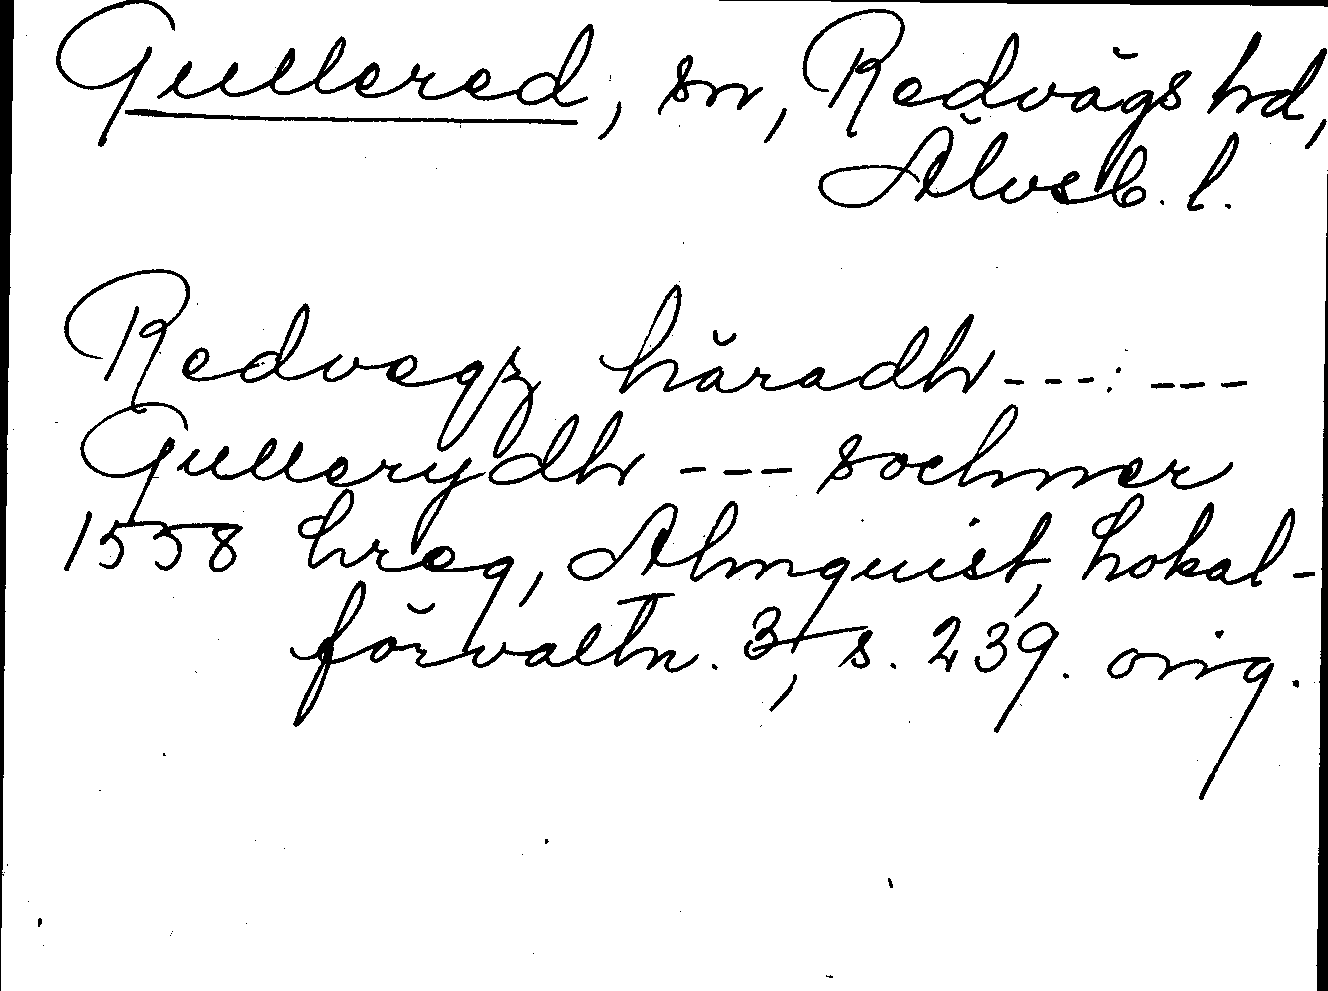 Gullered, sn, Redvägs hd,
Älvsb. l.
Redvegz häradh ---:---
Gullerydh --- sochner
1558 hreg, Almquist, Lokal-
förvaltn. 3, s. 239. orig.